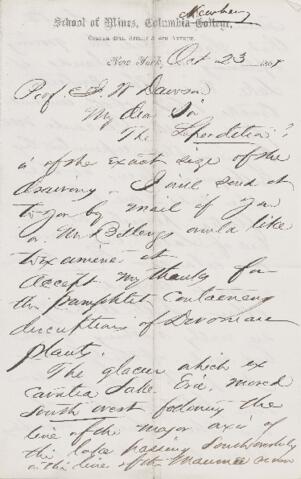 Newberry
School of Mines, Columbia College,
New York, Oct 23
Prof. J. W. Dawson
My Dear Sir
The Leperditia?
is of the exact size of the
drawing. I will send it
to you by mail if you
or Mr Billings would like
to examine it
Accept my thanks for
the pamphlet containing
descriptions of Devonian
plants.
The glacier which ex
cavated Lake Erie, moved
south west following the
line of the major axis of
the lake passing southwesterly
in the line of the Maumee river